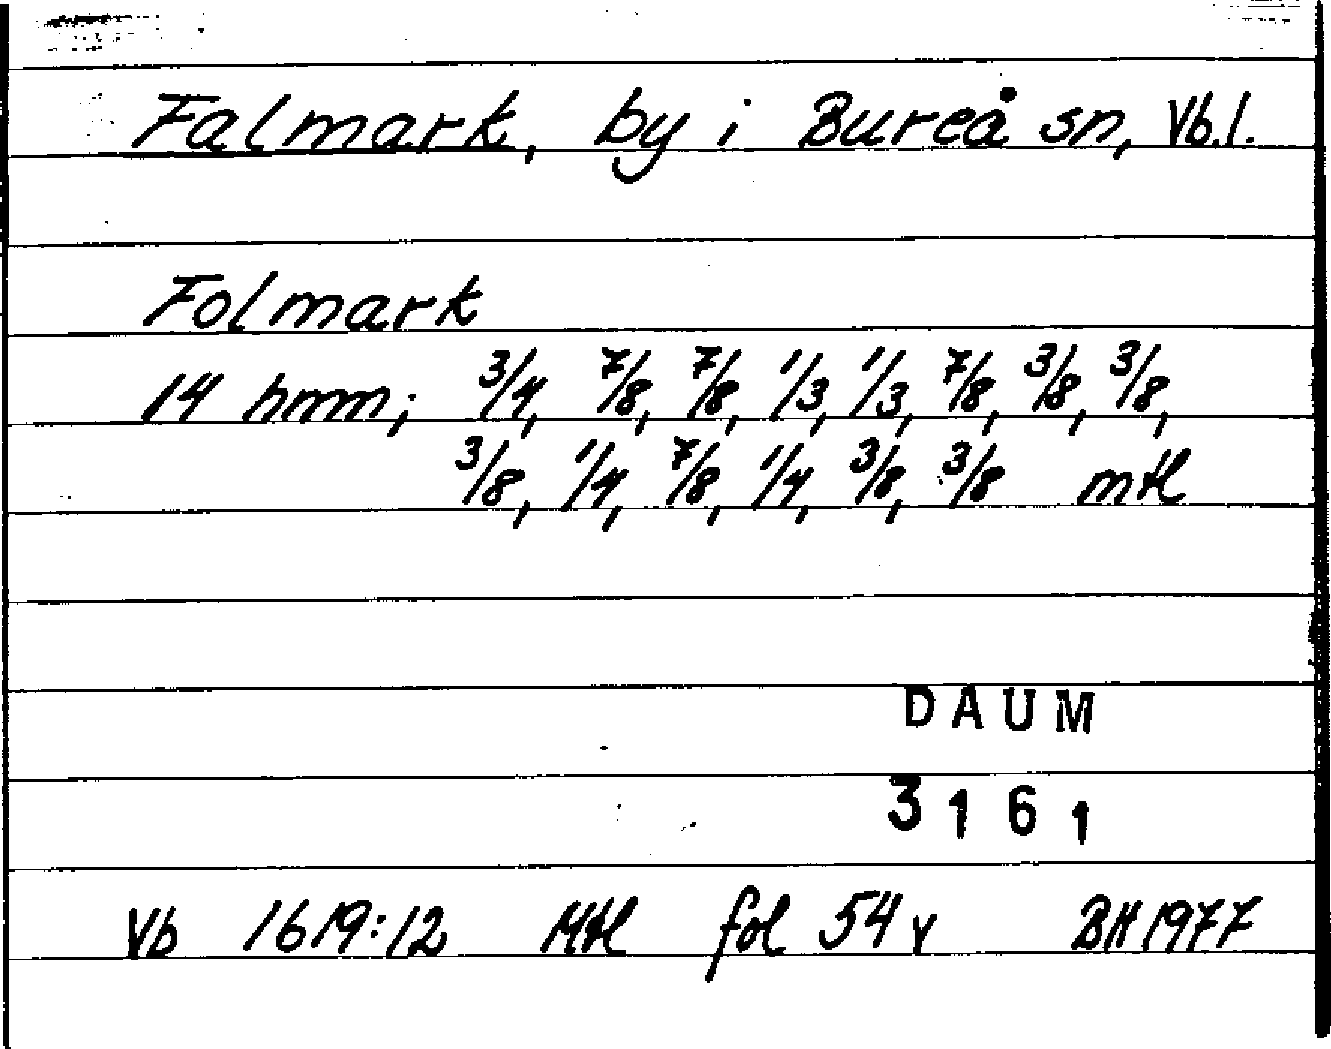 Falmark, by i Bureå sn, Vb.l.
Folmark
14 hmm; 3/4, 7/8, 7/8, 1/3, 1/3, 7/8, 3/8, 3/8,
3/8, 1/4, 7/8, 1/4, 3/8, 3/8 mtl
DAUM
3161
Vb 1619:12 Mtl fol 54 v BH 1977